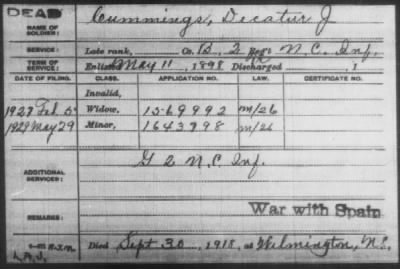 DEAD
NAME OF SOLDIER: Cummings, Decatur J
SERVICE: Late rank, Co. B, 2 Reg't N.C. Inf.
TERM OF SERVICE: Enlisted May 11, 1898 Discharged , 1
DATE OF FILING. CLASS. APPLICATION NO. LAW. CERTIFICATE NO.
Invalid,
1927 Feb 5 Widow, 1569992 m/26
1929 May 29 Minor, 1643798 m/26
ADDITIONAL SERVICES: G 2 N.C. Inf.
War with Spain
REMARKS:
Died Sept 30, 1918, at Wilmington, N.C.
L.A.J.